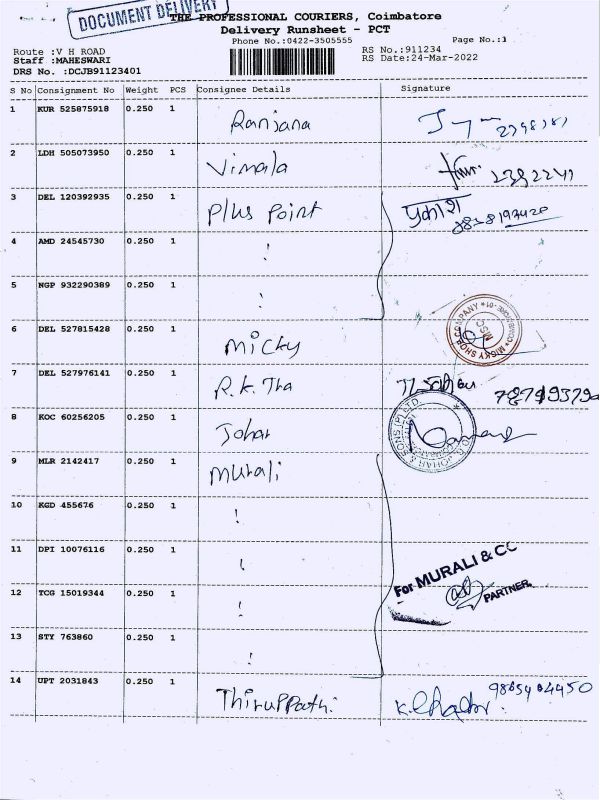 DOCUMENT DELIVERY
THE PROFESSIONAL COURIERS, Coimbatore
Delivery Runsheet - PCT
Phone No.:0422-3505555
Page No.:1
Route :V H ROAD
Staff :MAHESWARI
DRS No. :DCJB91123401
RS No.:911234
RS Date:24-Mar-2022
S No Consignment No Weight PCS Consignee Details Signature
1 KUR 525875918 0.250 1 Ranjana
2 LDH 505073950 0.250 1 Vimala
3 DEL 120392935 0.250 1 Plus Point प्रकाश
4 AMD 24545730 0.250 1
5 NGP 932290389 0.250 1
6 DEL 527815428 0.250 1 Micky
7 DEL 527976141 0.250 1 R.K. Tha
8 KOC 60256205 0.250 1 Johar
9 MLR 2142417 0.250 1 Murali
10 KGD 455676 0.250 1
11 DPI 10076116 0.250 1
For MURALI & CO
12 TCG 15019344 0.250 1
PARTNER.
13 STY 763860 0.250 1
14 UPT 2031843 0.250 1 Thiruppathi